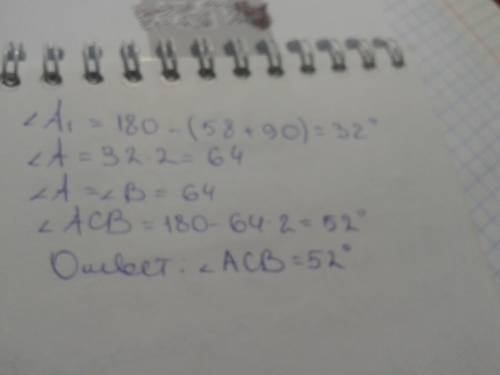 ∠A₁ = 180 - (58 + 90) = 32°
∠A = 32 · 2 = 64
∠A = ∠B = 64
∠ACB = 180 - 64 · 2 = 52°
Ответ: ∠ACB = 52°